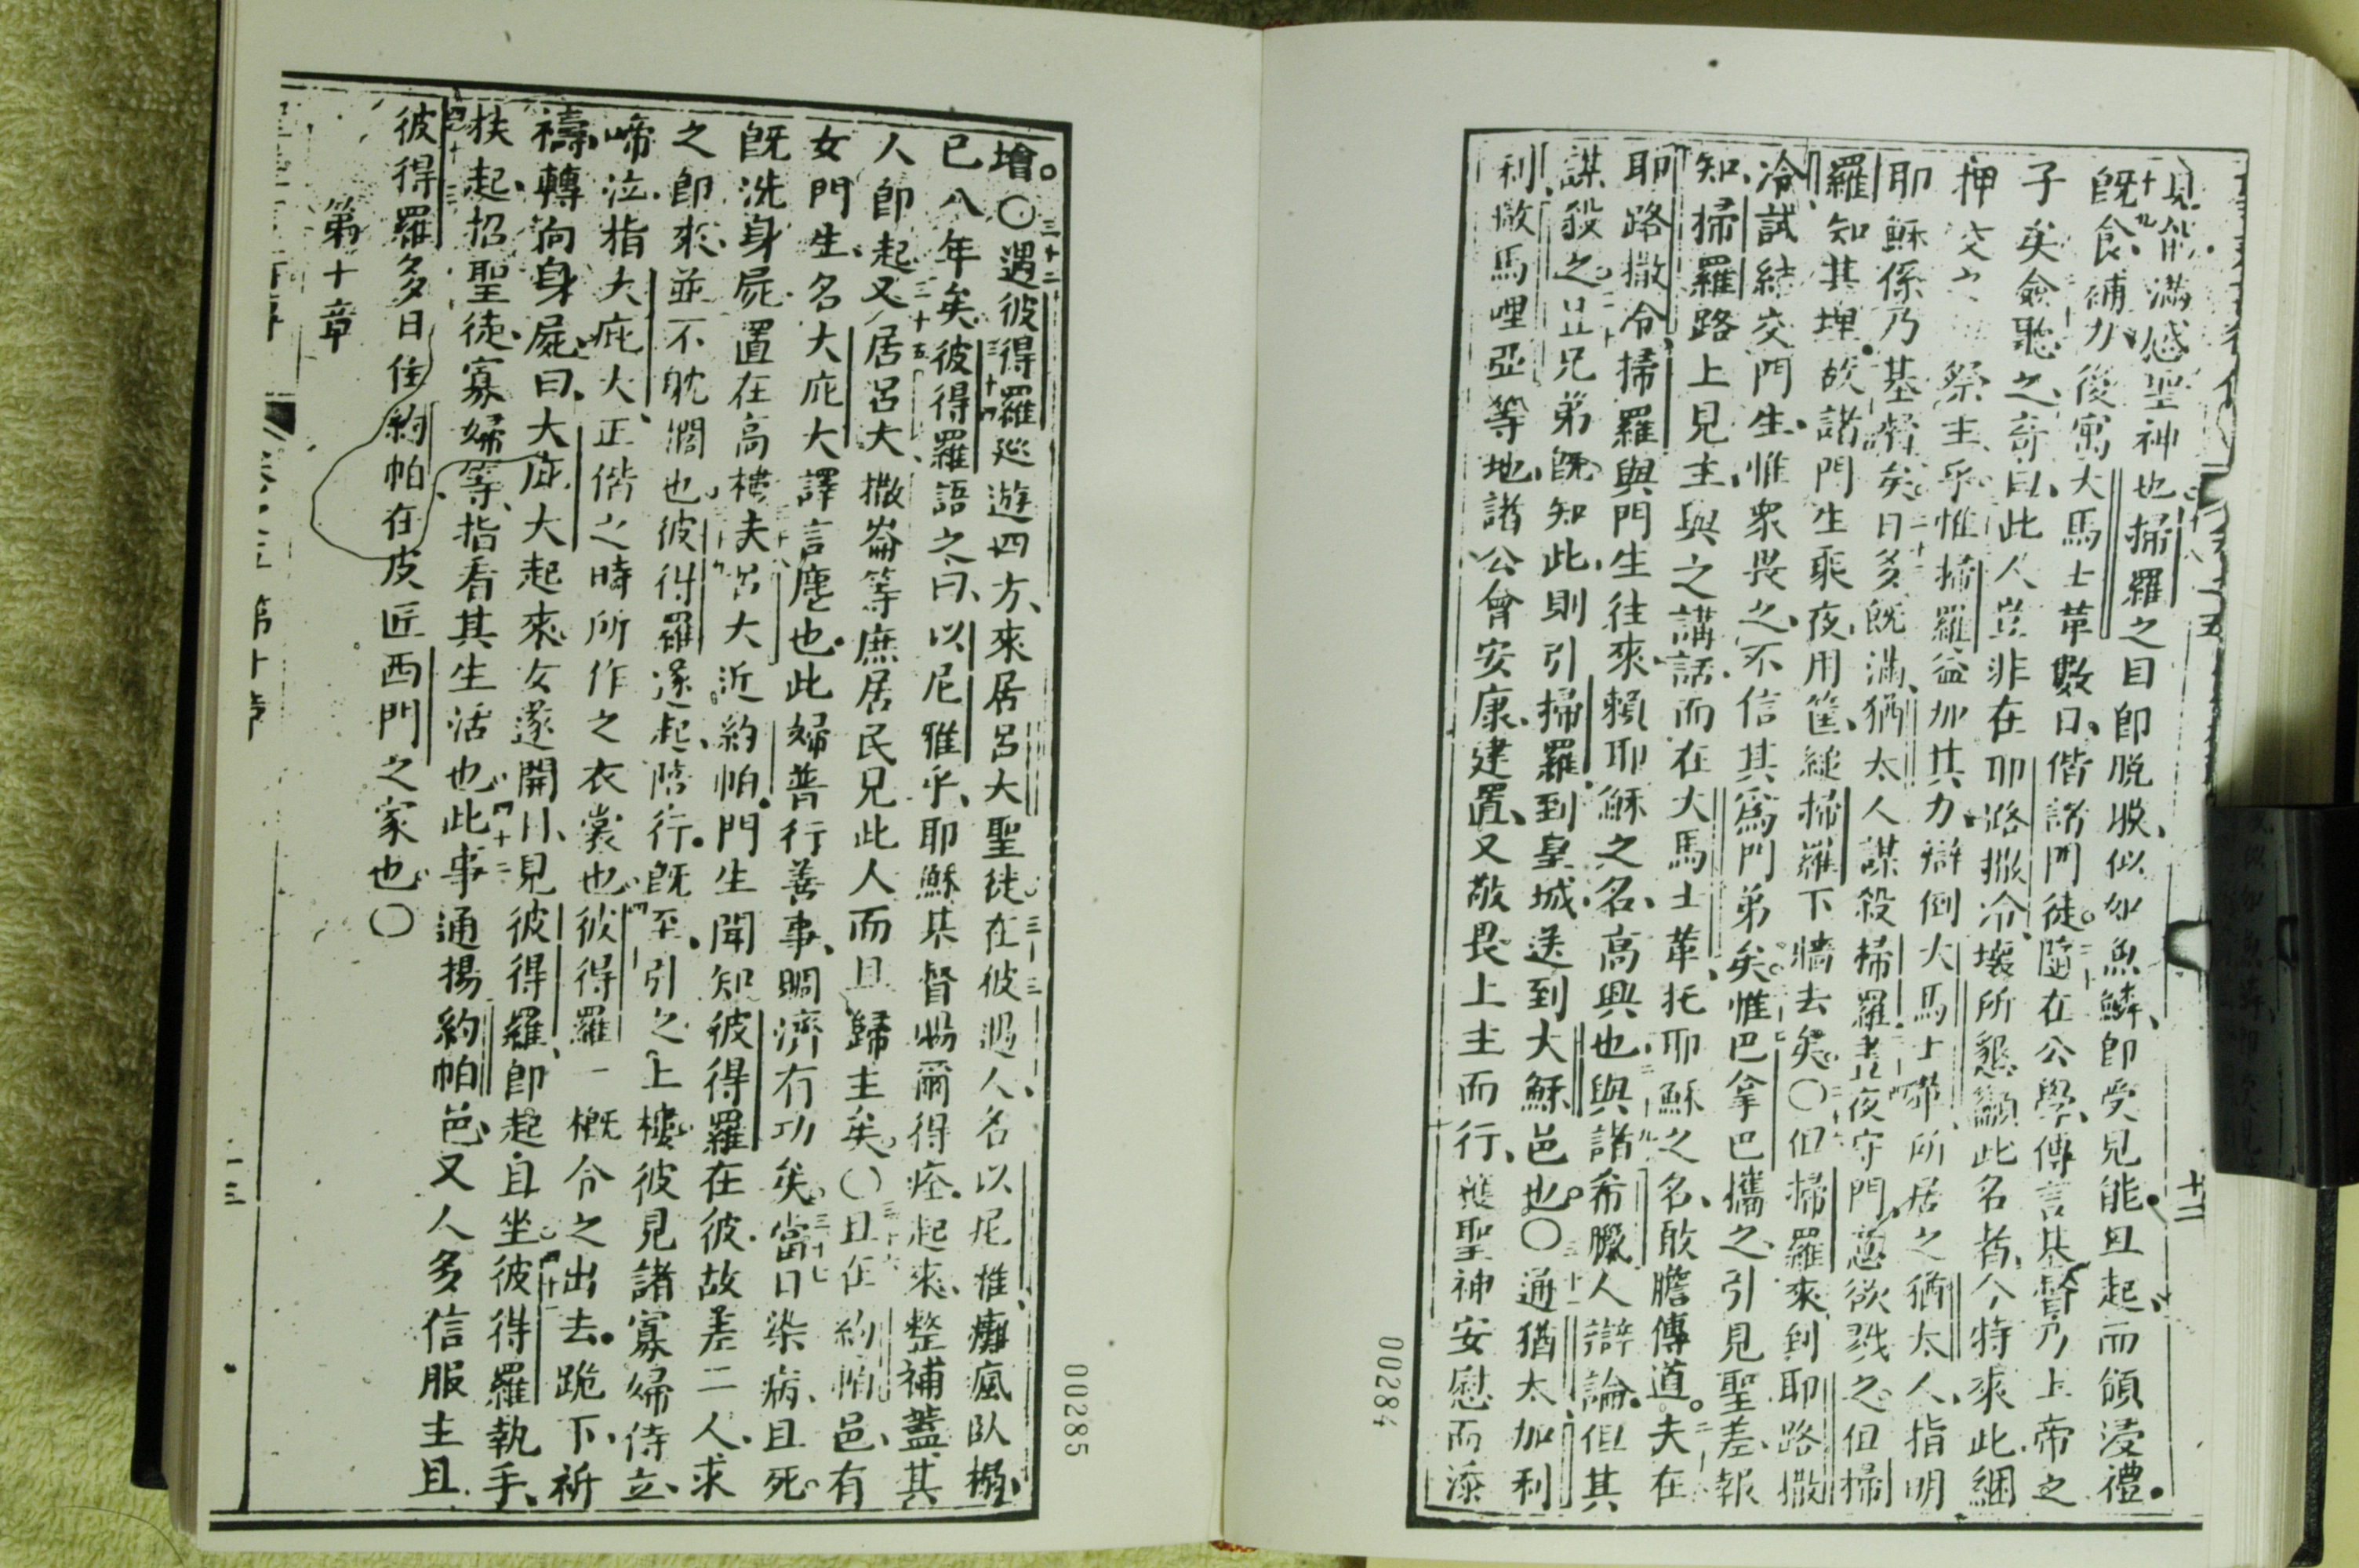 見能滿感聖神也掃羅之目即脫。似如魚鱗、即受見能且起、而領浸禮。
既食、補力、後寓大馬士革數日、偕諸門徒。隨在公學、傳言基督乃上帝之
子矣僉聽之、奇曰、此人豈非在耶路撒冷、壞所懇顲此名者、今特來此綑
押交 祭主乎、惟掃羅益加其力、辯倒大馬士 所居之猶太人、指明
耶穌係乃基督矣。日多既滿、猶太人謀殺掃羅。 夜守門、 欲戕之。但掃
羅知其埋。故諸門生乘夜、用筐、縋掃羅下牆去矣。〇但掃羅來到耶路撒
冷、試結交門生、惟眾畏之、不信其為門弟矣。惟巴拿巴攜之、引見聖差、報
知、掃羅路上見主、與之講話、而在大馬士革、托耶穌之名、敢膽傳道。夫在
耶路撒冷、掃羅與門生往來、賴耶穌之名、高興也、與諸希臘人辯論。但其
謀殺之。且兄弟既知此、則引掃羅到皇城、送到大穌邑也。〇通猶太、加利
利、撒馬哩亞等地、諸公會安康、建置、又敬畏上主而行、獲聖神安慰而添
00284
增。〇遇彼得羅巡遊四方、來居呂大聖徒。在彼遇人名以尼雅、癱瘋臥 
已八年矣。彼得羅語之曰、以尼雅乎、耶穌基督賜爾得痊。起來、整補蓋其
人即起。又居呂大撒崙等庶居民見此人而且歸主矣。〇且在約帕邑、有
女門生、名大庇大、譯言麀也。此婦普行善事、賙濟有功矣。當日染病、且死。
既洗身屍、置在高樓。夫呂大近約帕。門生聞知彼得羅在彼。故差二人、求
之即來、並不耽濶也。彼得羅遂起、陪行。既至、引之上樓。彼見諸寡婦侍立、
啼泣、指大庇大正偕之時所作之衣裳也。彼得羅一概令之出去。跪下、祈
禱、轉向身屍曰、大庇大起來。女遂開目、見彼得羅、即起自坐。彼得羅執手、
扶起、招聖徒寡婦等、指看其生活也。此事通揚約帕邑、又人多信服主。且
彼得羅多日住約帕在皮匠西門之家也。〇
第十章
第十章
00285